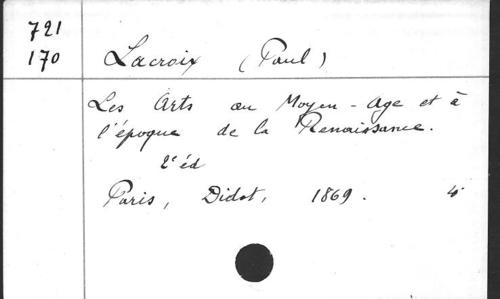 721
170
Lacroix (Paul)
Les Arts au Moyen-Age et à
l'époque de la Renaissance.
2e éd
Paris, Didot, 1869. 4°